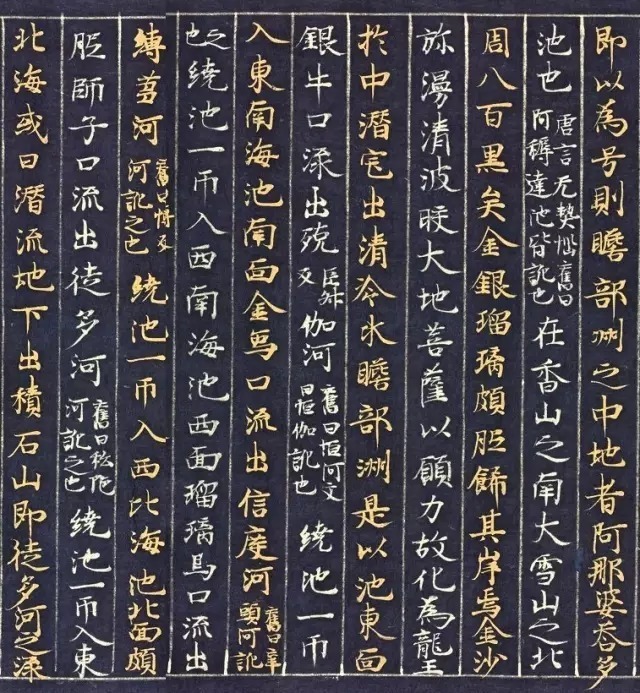 即以為号則贍部洲之中地者阿那婆荅多
池也唐言无熱惱舊曰阿耨達池皆訛也在香山之南大雪山之北
周八百黑矣金銀瑠璃頗胝餝其岸焉金沙
弥漫清波晈大地菩薩以願力故化為龍王
於中潛宅出清冷水贍部洲是以池東面
銀牛口流出殑伽河舊曰恒河又曰恒伽訛也繞池一帀
入東南海池南面金象口流出信度河舊曰辛頭河訛
之也繞池一帀入西南海池西面瑠璃馬口流出
縛芻河舊曰愽叉河訛之也繞池一帀入西北海池北面頗
胝師子口流出徒多河舊曰私陀河訛之也繞池一帀入東
北海或曰潛流地下出積石山即徒多河之流